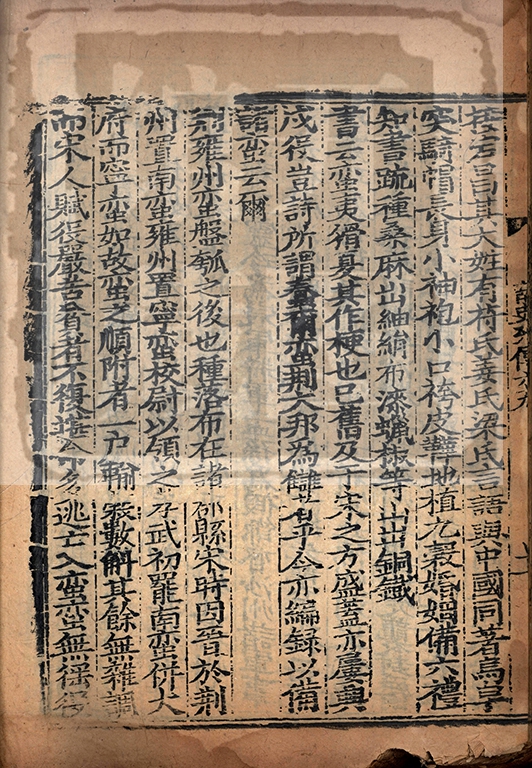 接宕昌其大姓有苻氏姜氏梁氏言語與中國同著烏皁
突騎帽長身小袖袍小口袴皮鞾地植九穀婚姻備六禮
知書疏種桑麻出紬絹布漆蠟椒等山出銅鐵
書云蠻夷猾夏其作梗也已舊及于宋之方盛蓋亦屢興
戍役豈詩所謂蠢爾蠻荊大邦為讎者乎今亦編錄以備
諸蠻云爾
荊雍州蠻盤瓠之後也種落布在諸郡縣宋時因晉於荊
州置南蠻雍州置寧蠻校尉以領之孝武初罷南蠻併大
府而寧蠻如故蠻之順附者一戶輸穀數斛其餘無雜調
而宋人賦役嚴苦貧者不復堪命多逃亡入蠻蠻無徭役